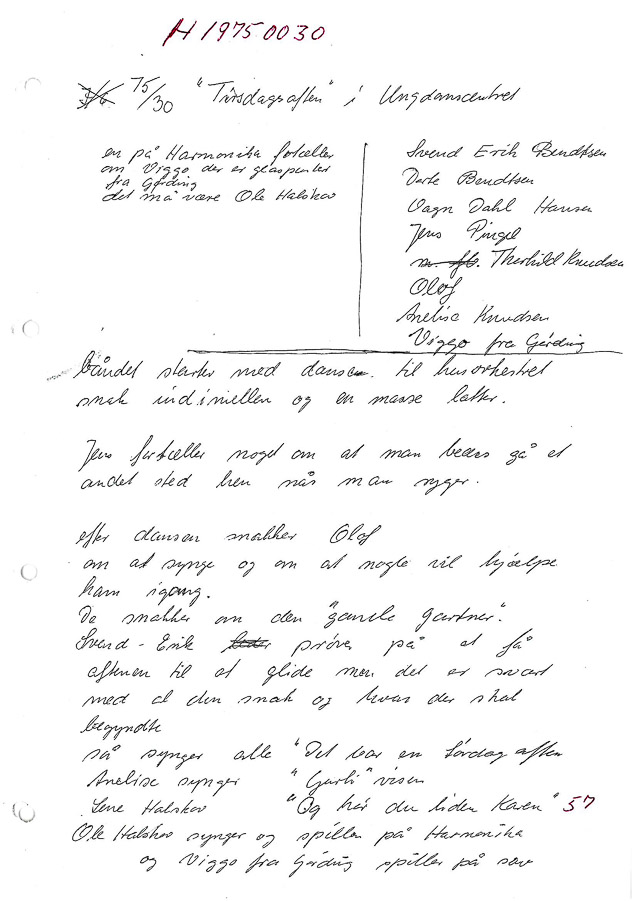 H 1975 0030
75/30 "Tirsdagsaften" i Ungdomscentret
en på Harmonika fotæller
om Viggo der er glaspuster
fra Gørding
det må være Ole Halskov
Svend Erik Bendtsen
Dorte Bendtsen
Vagn Dahl Hansen
Jens Pingel
m. fl. Thorkild Knudsen
Olof
Anelise Knudsen
Viggo fra Gørding
båndet starter med dansen. til husorkestret
snak indimellem og en masse latter.
Jens fortæller noget om at man bedes gå et
andet sted hen når man ryger.
efter dansen snakker Olof
om at synge og om at nogle vil hjælpe
ham igang.
De snakker om den "gamle gartner".
Svend-Erik prøver på at få
aftenen til at glide men det er svært
med al den snak og hvor der skal
begyndte
så synger alle "Det var en Lørdag aften
Anelise synger "Gurli" visen
Lene Halskov "Og hør du liden Karen" 57
Ole Halskov synger og spiller på Harmonika
og Viggo fra Gørding spiller på sav